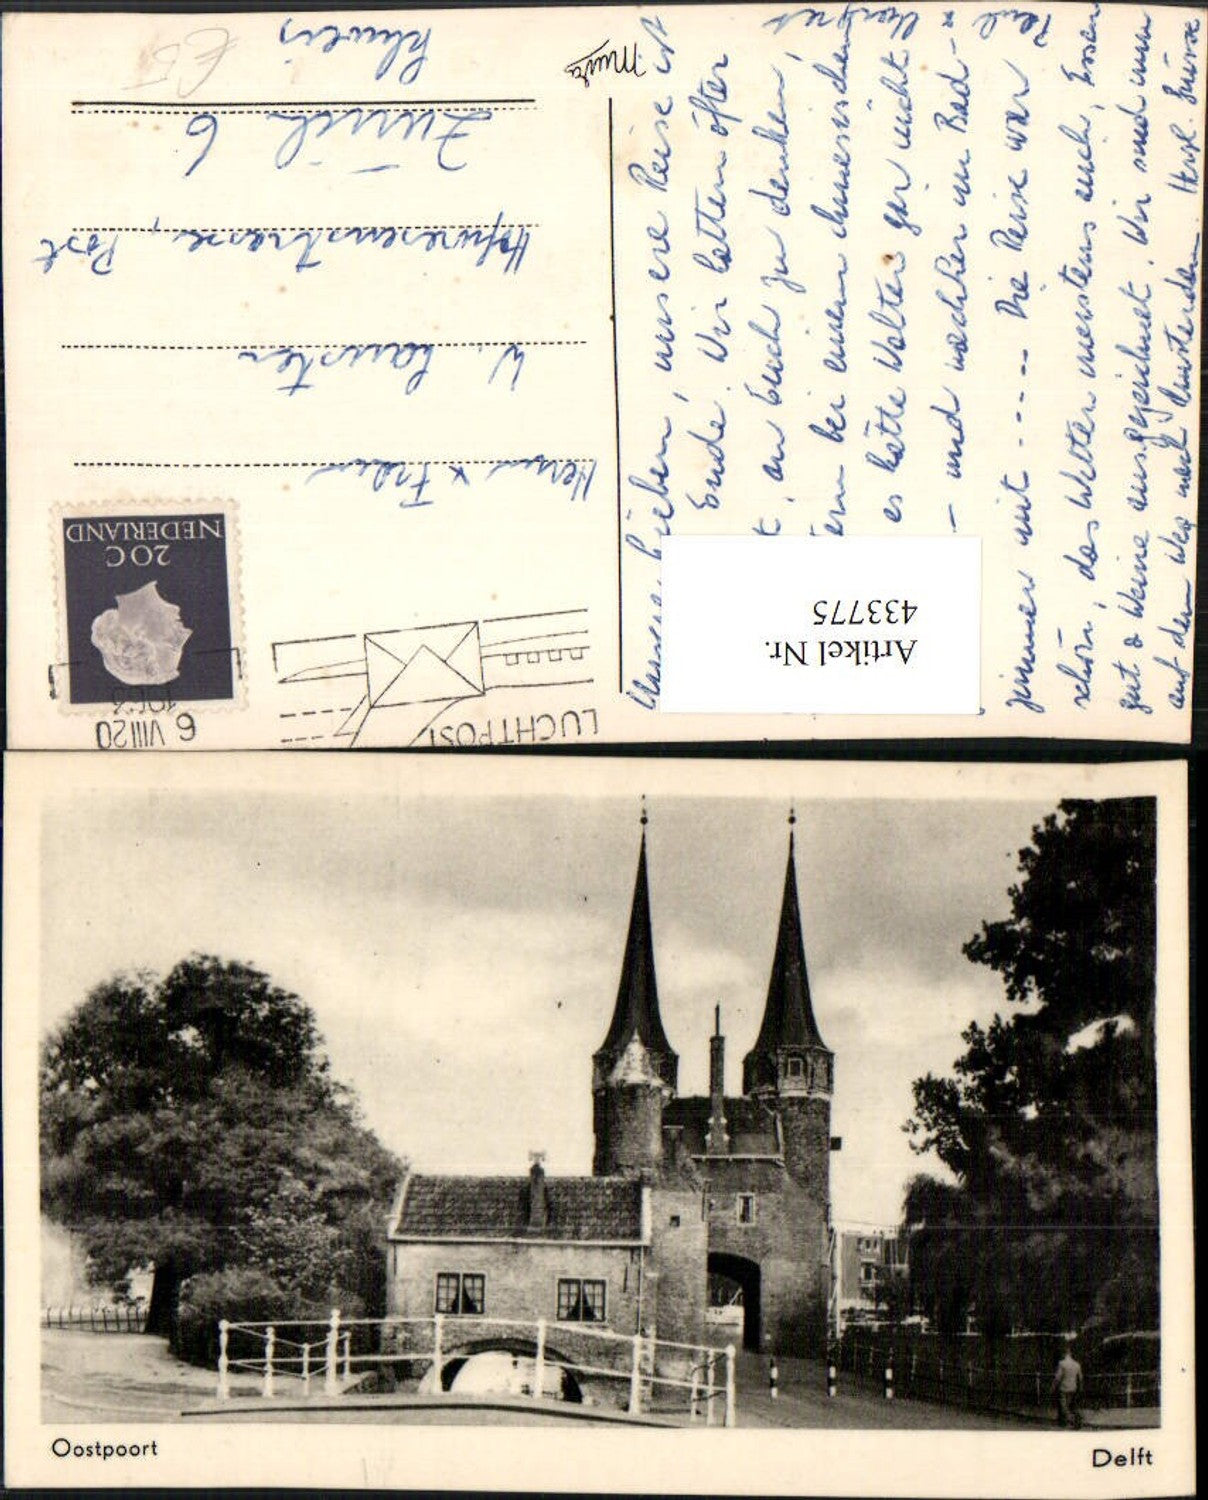 Meine Lieben, unsere Reise ist
Ende. Wir hatten öfter
an Euch zu denken,
bei einem chinesischen
es hätte Walter gar nicht
– und nachher im Bad-
zimmer mit ---- Die Reise war
schön, das Wetter meistens auch, Essen
gut & Weine ausgezeichnet. Wir sind nun
auf dem Weg nach Amsterdam. Herzl. Grüsse
LUCHTPOST
6 VIII 20
NEDERLAND
20 C
Herrn & Frau
W.
Hofwiesenstrasse, Post
Zürich 6
Schweiz
Artikel Nr.
433775
Oostpoort
Delft